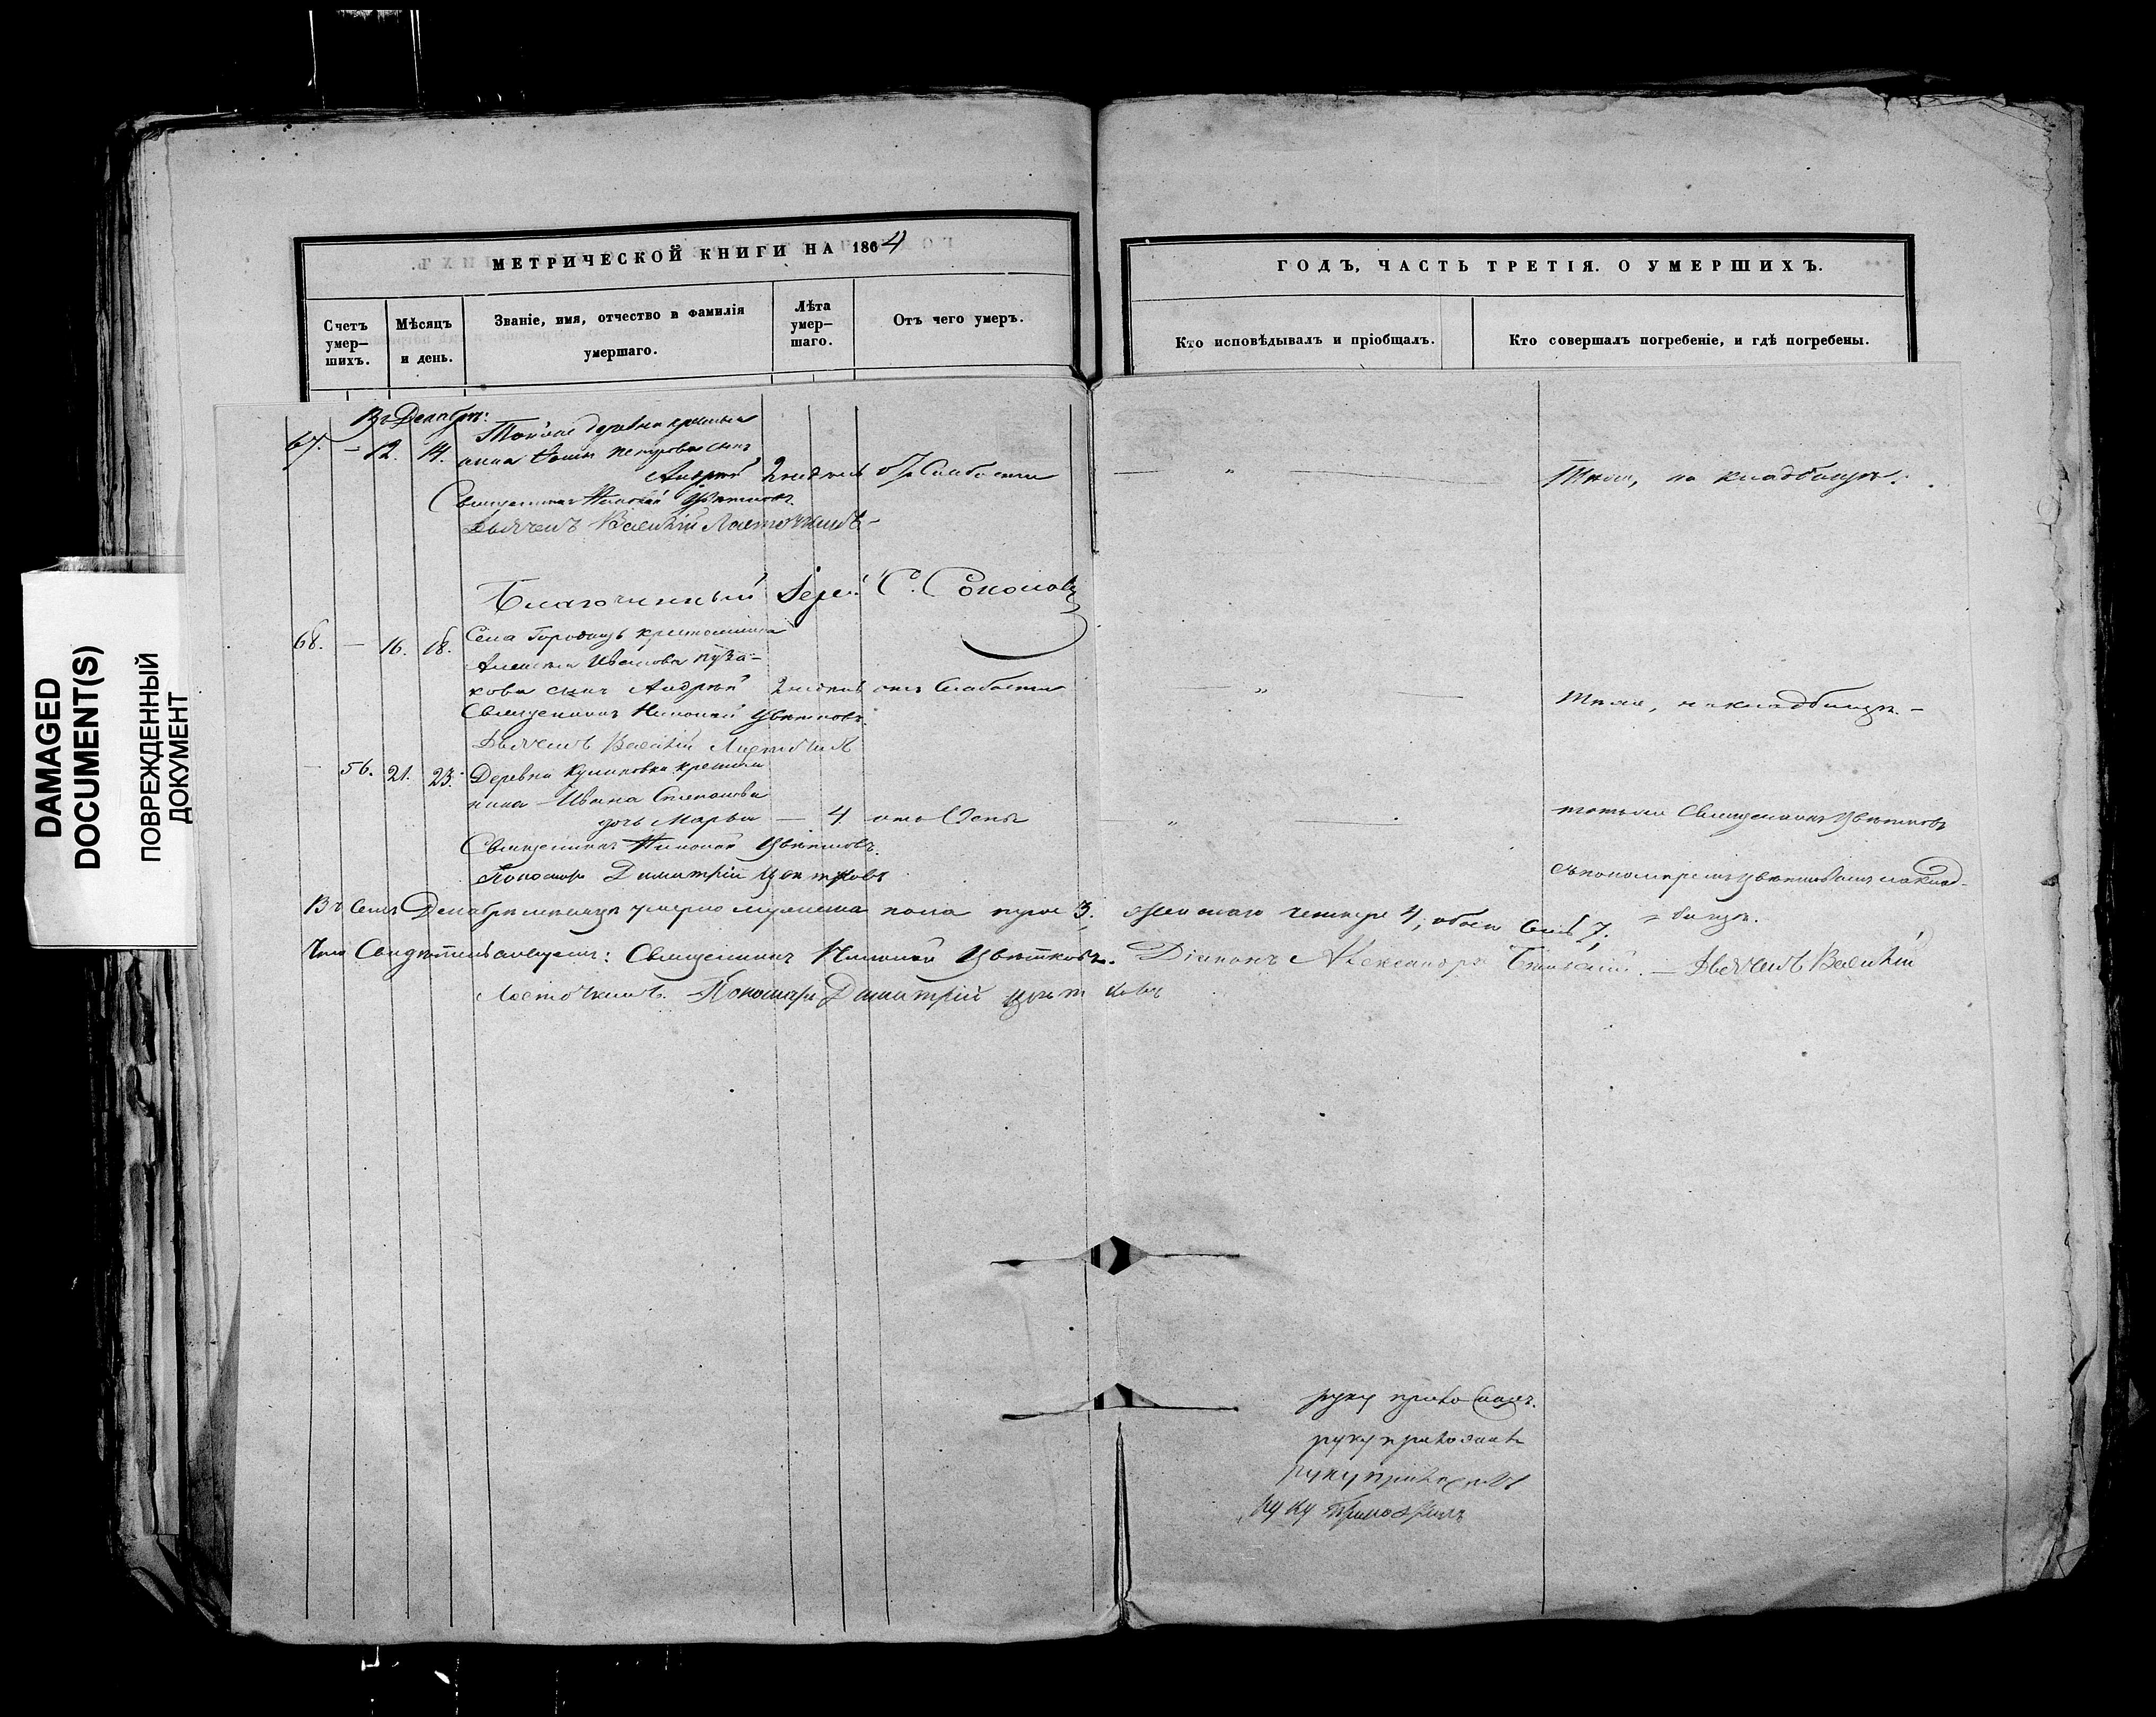 МЕТРИЧЕСКОЙ КНИГИ НА 1864
ГОДЪ, ЧАСТЬ ТРЕТІЯ. О УМЕРШИХЪ.
Счетъ умер-
шихъ.
Мѣсяцъ
и день.
Званіе, имя, отчество и фамилія
умершаго.
Лѣта
умер-
шаго.
Отъ чего умеръ.
Кто исповѣдывалъ и пріобщалъ.
Кто совершалъ погребеніе, и гдѣ погребены.
Въ Декабрѣ:
67. — 12. 14. Тойже деревни крестья
нина Петрова сынъ
Андрей 2 недѣль отъ Слабости — " — Тѣми, на кладбищѣ.
Священникъ Николай Цвѣтковъ
Дьячекъ Василій Ласточкинъ
Благочинный Іерей С. Соколовъ
68. — 16. 18. Села крестьянина
Алексѣя Иванова Пуза-
кова сынъ Андрей 2 недѣль отъ Слабости — " — Тѣми, на кладбищѣ. —
Священникъ Николай Цвѣтковъ.
Дьячекъ Василій Ласточкинъ
— 56. 21. 23. Деревни Куликовки крестья
нина Ивана Степанова
дочь Марья — 4 отъ Оспы — " — тотъже Священникъ Цвѣтковъ
Священникъ Николай Цвѣтковъ.
Пономарь Димитрій Цвѣтковъ
съ пономаремъ Цвѣтковымъ на клад-
бищѣ.
Въ семъ Декабрѣ мѣсяцѣ умерло мужеска пола трое 3, женскаго четыре 4, обоего семь 7.
Въ чемъ Свидѣтельствуемъ: Священникъ Николай Цвѣтковъ. Діаконъ Александръ — Дьячекъ Василій
Ласточкинъ. Пономарь Димитрій Цвѣтковъ
руку приложилъ.
руку приложилъ
руку приложилъ
руку приложилъ
DAMAGED
DOCUMENT(S)
ПОВРЕЖДЕННЫЙ
ДОКУМЕНТ